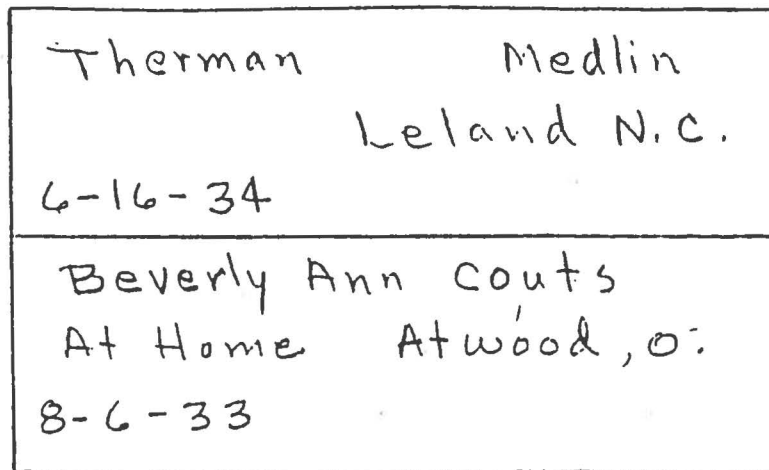 Therman Medlin
Leland N.C.
6-16-34
Beverly Ann Couts
At Home Atwood, O.
8-6-33